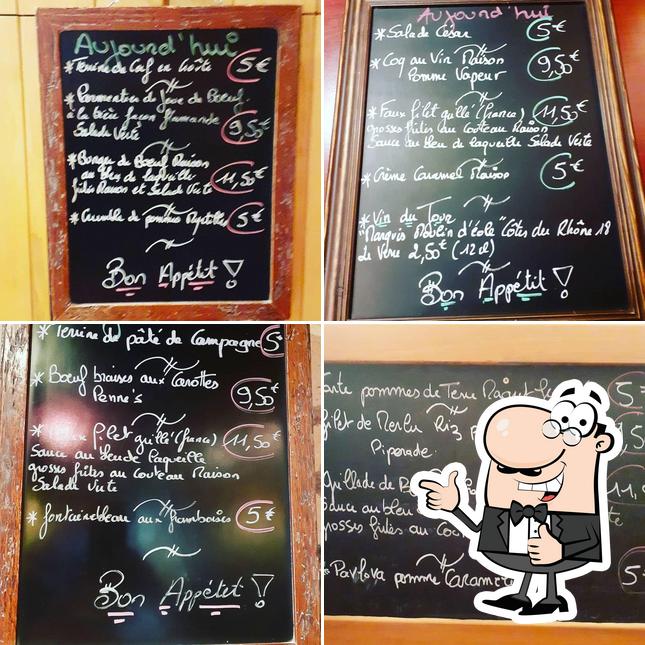 Aujourd'hui
*Terrine de en 5€
*Parmentier de Joue de Boeuf
à la bière façon flamande
Salade Verte 9,50€
*Burger de Boeuf Maison
au bleu de laqueuille
frites Maison et Salade Verte 11,50€
*Crumble de pommes Myrtilles 5€
Bon Appétit !
Aujourd'hui
*Salade César 5€
*Coq au Vin Maison
Pomme Vapeur 9,50€
*Faux filet grillé (france) 11,50€
grosses frites au Couteau Maison
Sauce au bleu de laqueuille Salade Verte
*Crème Caramel Maison 5€
*Vin du Jour
"Marquis Moulin d'éole" Côtes du Rhône 18
le Verre 2,50€ (12cl)
Bon Appétit !
*Terrine de pâté de Campagne 5€
*Boeuf braisés aux Carottes
Penne's 9,50€
*Faux filet grillé (france) 11,50€
Sauce au bleu de Laqueuille
grosses frites au Couteau Maison
Salade Verte
*fontainebleau aux framboises 5€
Bon Appétit !
pommes de Terre 5
filet de Merlu Riz
Piperade.
Grillade de 11,
Sauce au bleu
grosses frites au
*Pavlova pomme Caramel 5